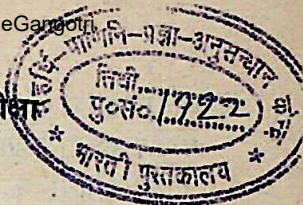 eGangotri
पाणिनि-प्रज्ञा-अनुसन्धान
तिथी..........
पु०सं०.1722
* भारती पुस्तकालय *